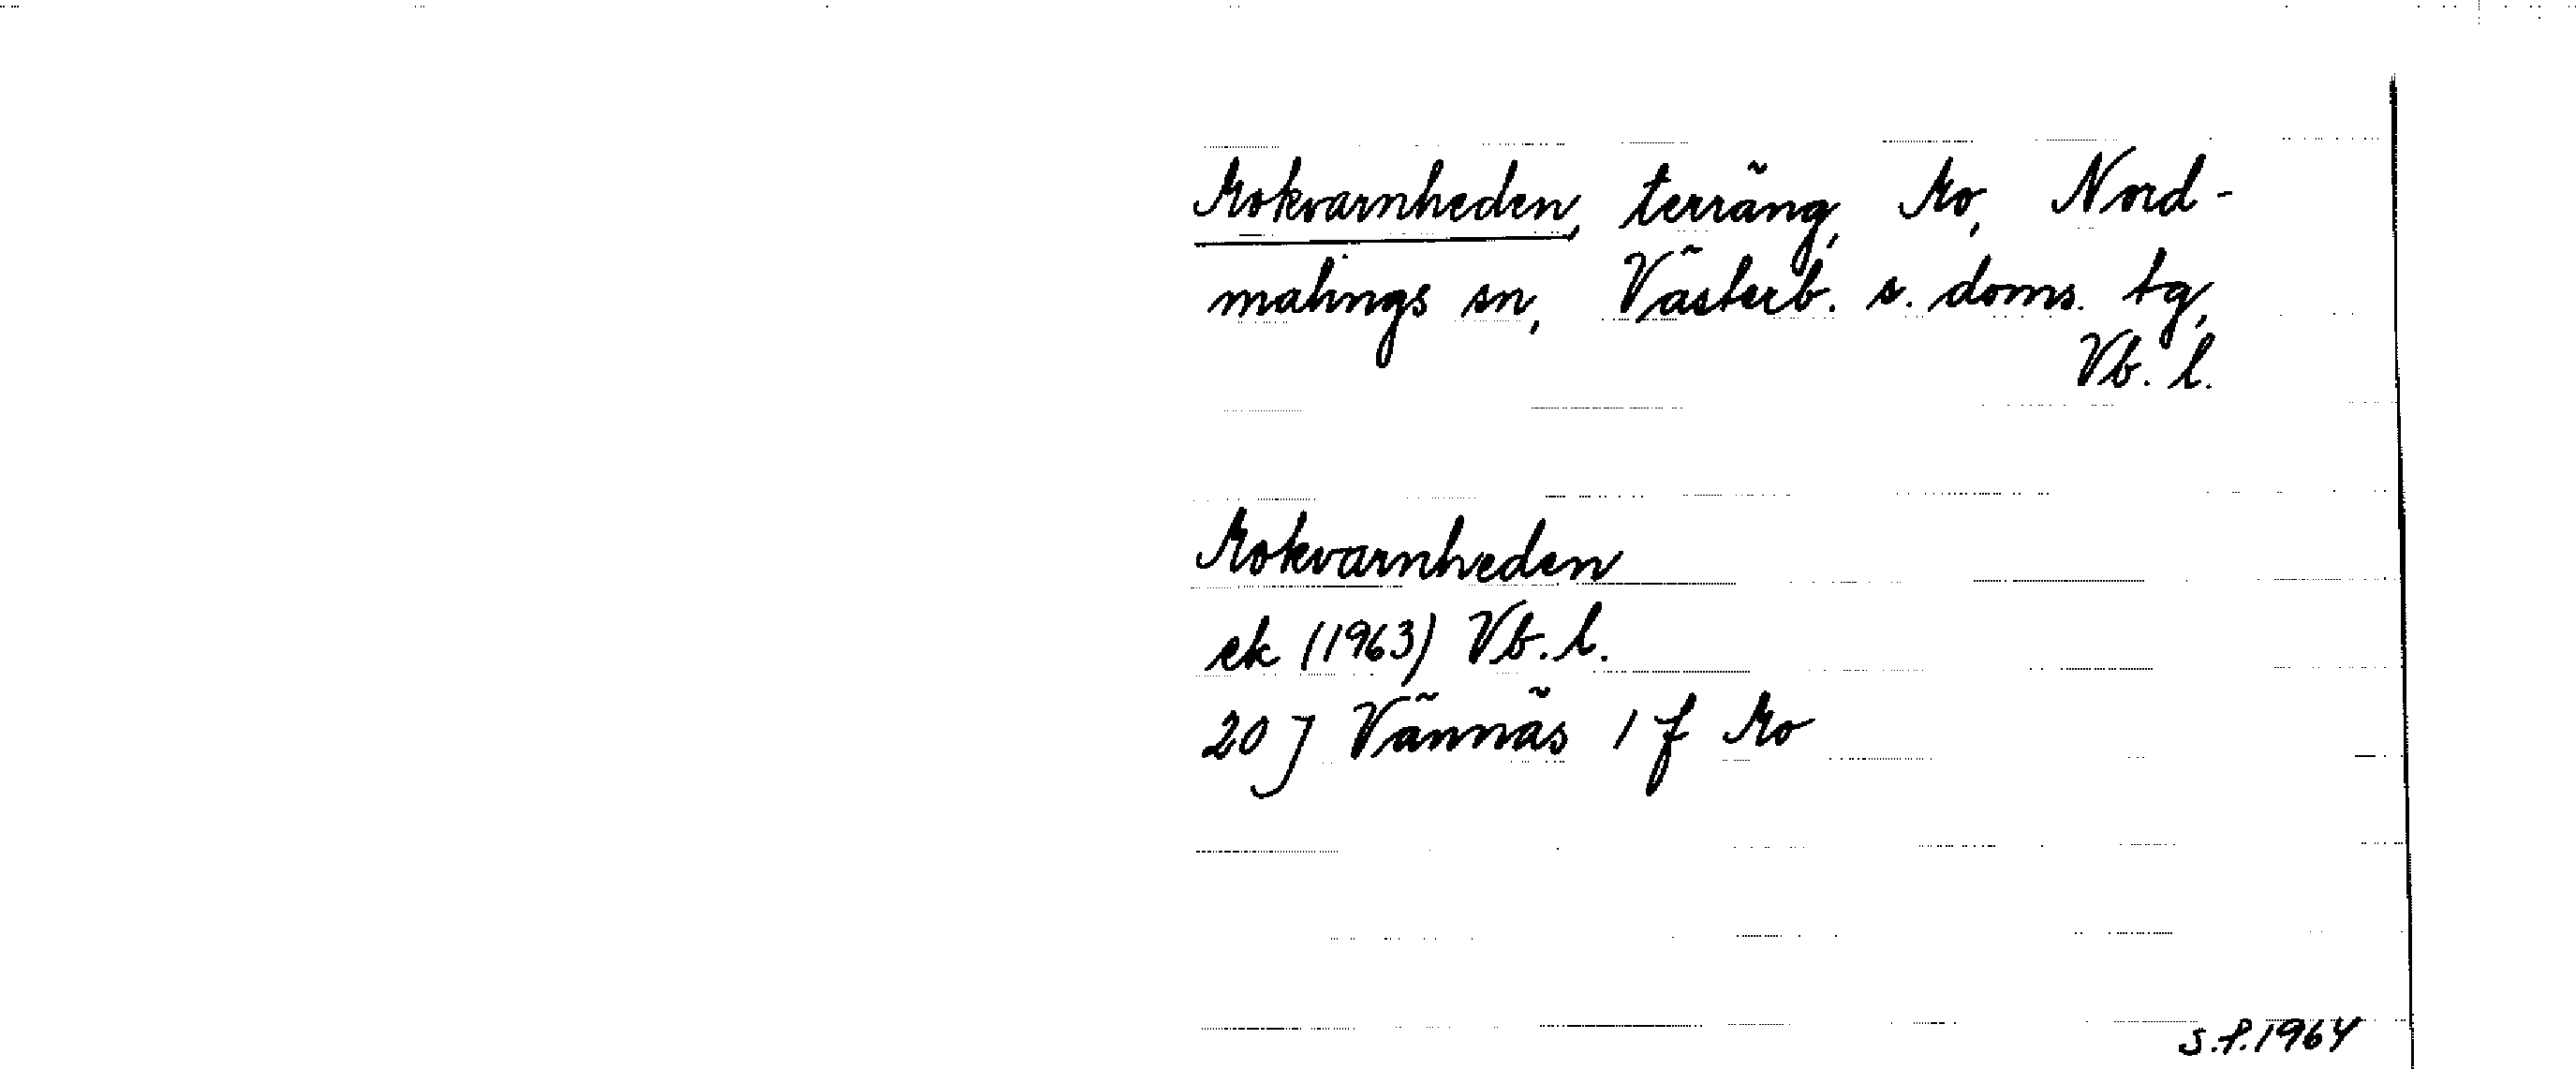 Mokvarnheden, terräng, Mo, Nord-
malings sn, Västerb. s. doms. tg,
Vb. l.
Mokvarnheden
ek (1963) Vb. l.
20 J Vännäs 1 f Mo
S.F. 1964